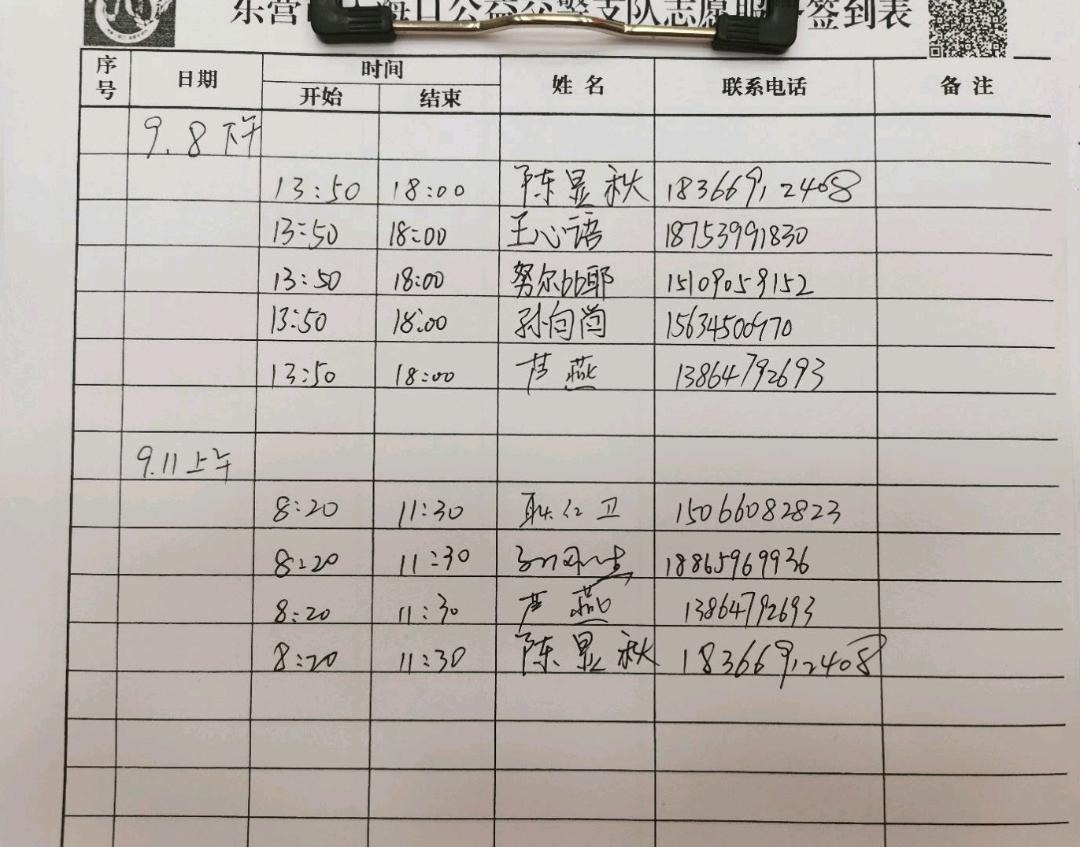 东营 海口公益 支队志愿服 签到表
序号 日期 时间 姓名 联系电话 备注
开始 结束
9.8下午
13:50 18:00 陈显秋 18366912408
13:50 18:00 王心语 18753991830
13:50 18:00 努尔比耶 15109059152
13:50 18:00 孙向尚 15634500970
13:50 18:00 芦燕 13864792693
9.11上午
8:20 11:30 耿红卫 15066082823
8:20 11:30 18865969936
8:20 11:30 芦燕 13864792693
8:20 11:30 陈显秋 18366912408